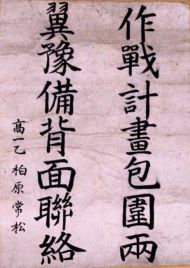 作戰計畫包圍兩
翼豫備背面聯絡
高一乙 柏原常松